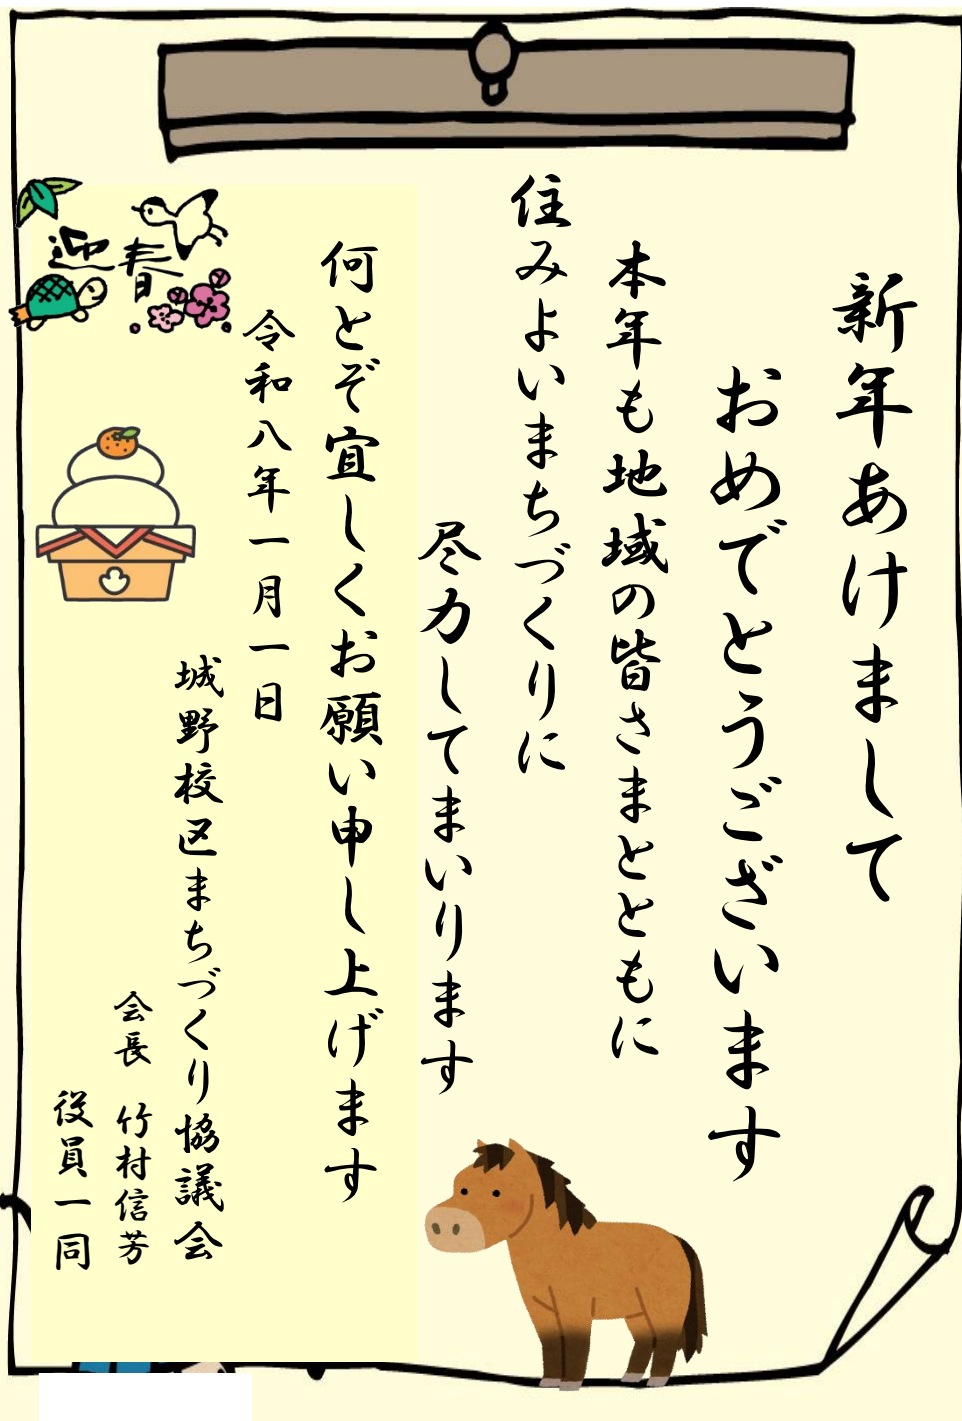 新年あけまして
おめでとうございます
本年も地域の皆さまとともに
住みよいまちづくりに
尽力してまいります
何とぞ宜しくお願い申し上げます
令和八年一月一日
城野校区まちづくり協議会
会長　竹村信芳
役員一同
迎春